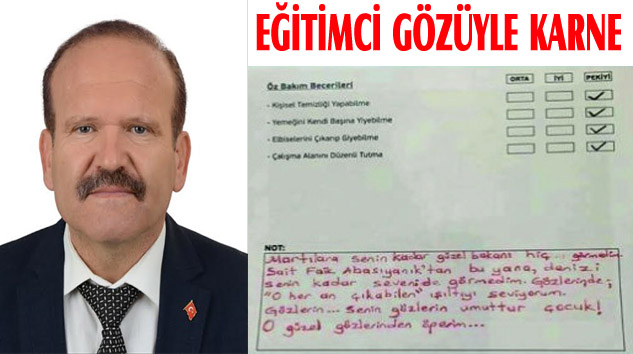 EĞİTİMCİ GÖZÜYLE KARNE
Öz Bakım Becerileri ORTA İYİ PEKİYİ
- Kişisel Temizliği Yapabilme
- Yemeğini Kendi Başına Yiyebilme
- Elbiselerini Çıkarıp Giyebilme
- Çalışma Alanını Düzenli Tutma
NOT:
Martılara senin kadar güzel bakanı hiç görmedim.
Sait Faik Abasıyanık'tan bu yana, denizi
senin kadar seveni de görmedim. Gözlerinde;
"O her an çıkabilen" ışıltıyı seviyorum.
Gözlerin... Senin gözlerin umuttur çocuk!
O güzel gözlerinden öperim...